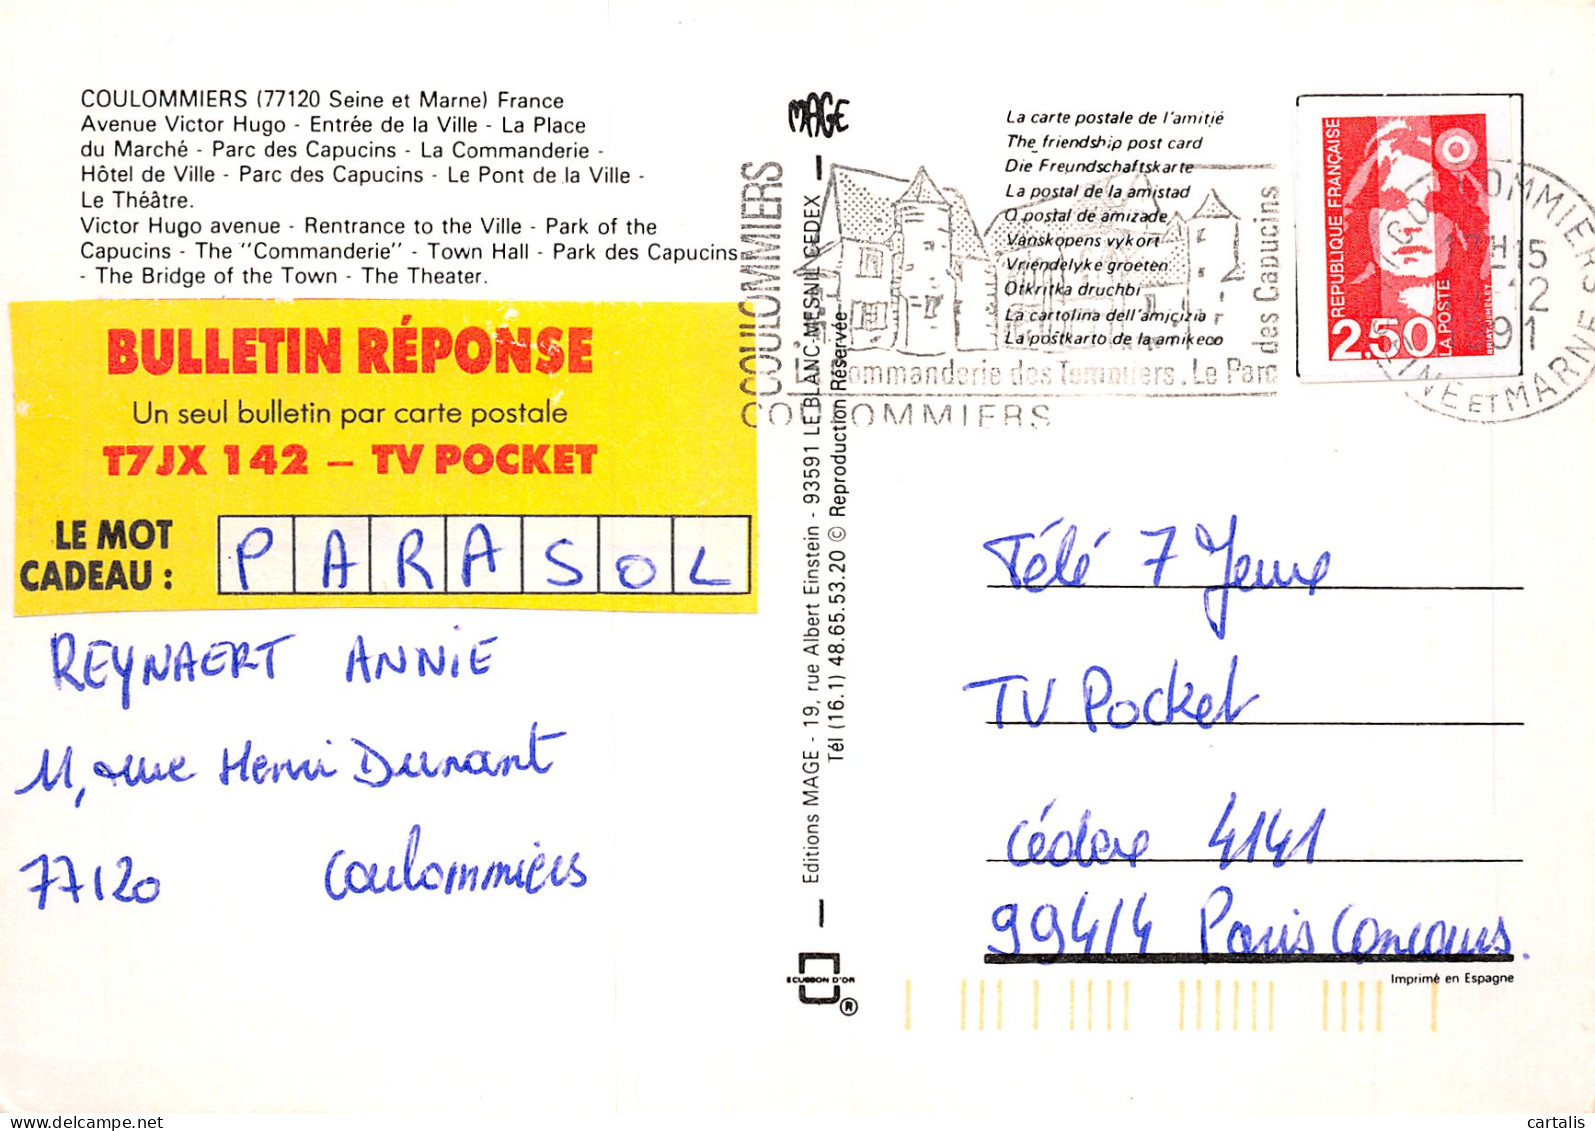 COULOMMIERS (77120 Seine et Marne) France
Avenue Victor Hugo - Entrée de la Ville - La Place
du Marché - Parc des Capucins - La Commanderie -
Hôtel de Ville - Parc des Capucins - Le Pont de la Ville -
Le Théâtre.
Victor Hugo avenue - Rentrance to the Ville - Park of the
Capucins - The "Commanderie" - Town Hall - Park des Capucins
- The Bridge of the Town - The Theater.
BULLETIN RÉPONSE
Un seul bulletin par carte postale
T7JX 142 – TV POCKET
LE MOT
CADEAU :
PARASOL
REYNAERT ANNIE
11, rue Henri Dunant
77120 Coulommiers
MAGE
Editions MAGE - 19, rue Albert Einstein - 93591 LE BLANC-MESNIL CEDEX
Tél (16.1) 48.65.53.20 © Reproduction Réservée
ECUSSON D'OR
®
La carte postale de l'amitié
The friendship post card
Die Freundschaftskarte
La postal de la amistad
O postal de amizade
Vanskopens vykort
Vriendelyke groeten
Otkritka druchbi
La cartolina dell'amicizia
La postkarto de la amikeco
COULOMMIERS
La Commanderie des Templiers. Le Parc
des Capucins
COULOMMIERS
REPUBLIQUE FRANÇAISE
2,50
LA POSTE
BRIAT-JUMELET
COULOMMIERS
17H15
12
1991
SEINE ET MARNE
Télé 7 Jeux
TV Pocket
Cédex 4141
99414 Paris Concours.
Imprimé en Espagne
cartalis